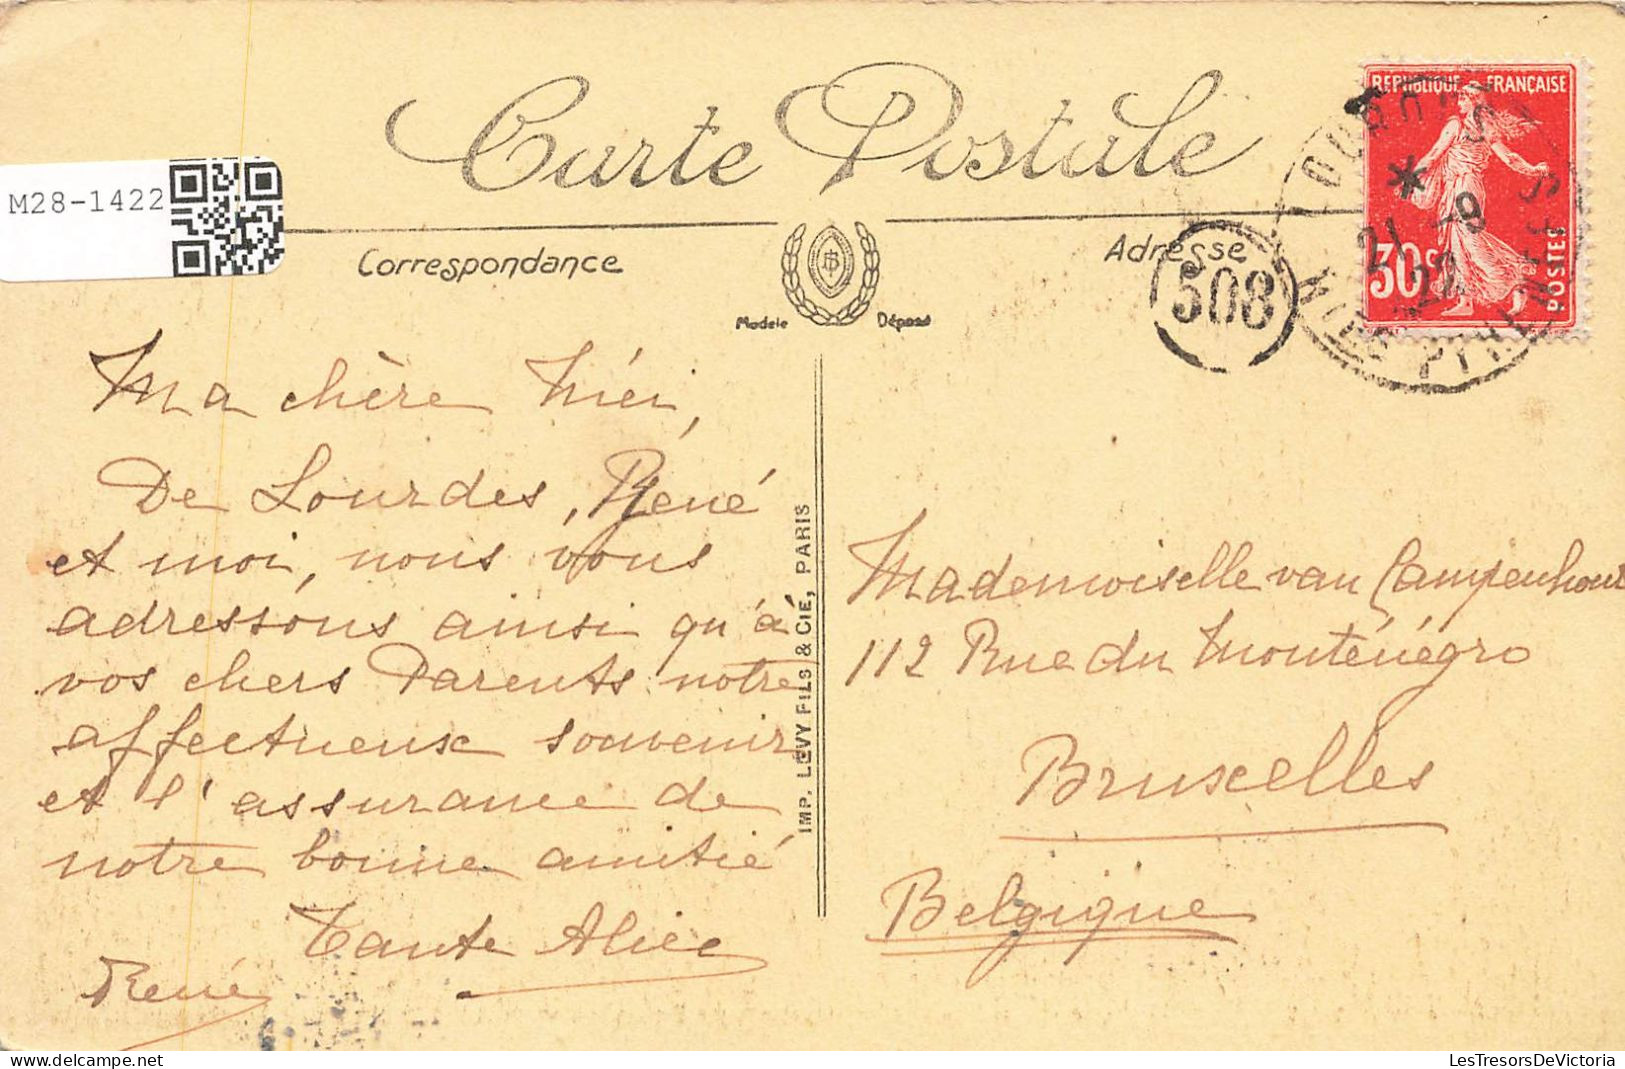 Carte Postale
M28-1422
REPUBLIQUE FRANÇAISE
30c
POSTES
21 -9
22
Correspondance
Adresse
508
Modele Déposé
Ma chère Miéi,
De Lourdes, René
et moi, nous vous
adressons ainsi qu'à
vos chers Parents notre
affectueux souvenir
et l'assurance de
notre bonne amitié
Tante Alice
René
IMP. LEVY FILS & CIE, PARIS
Mademoiselle van Campenhout
112 Rue du Monténégro
Bruxelles
Belgique
LesTresorsDeVictoria
delcampe.net